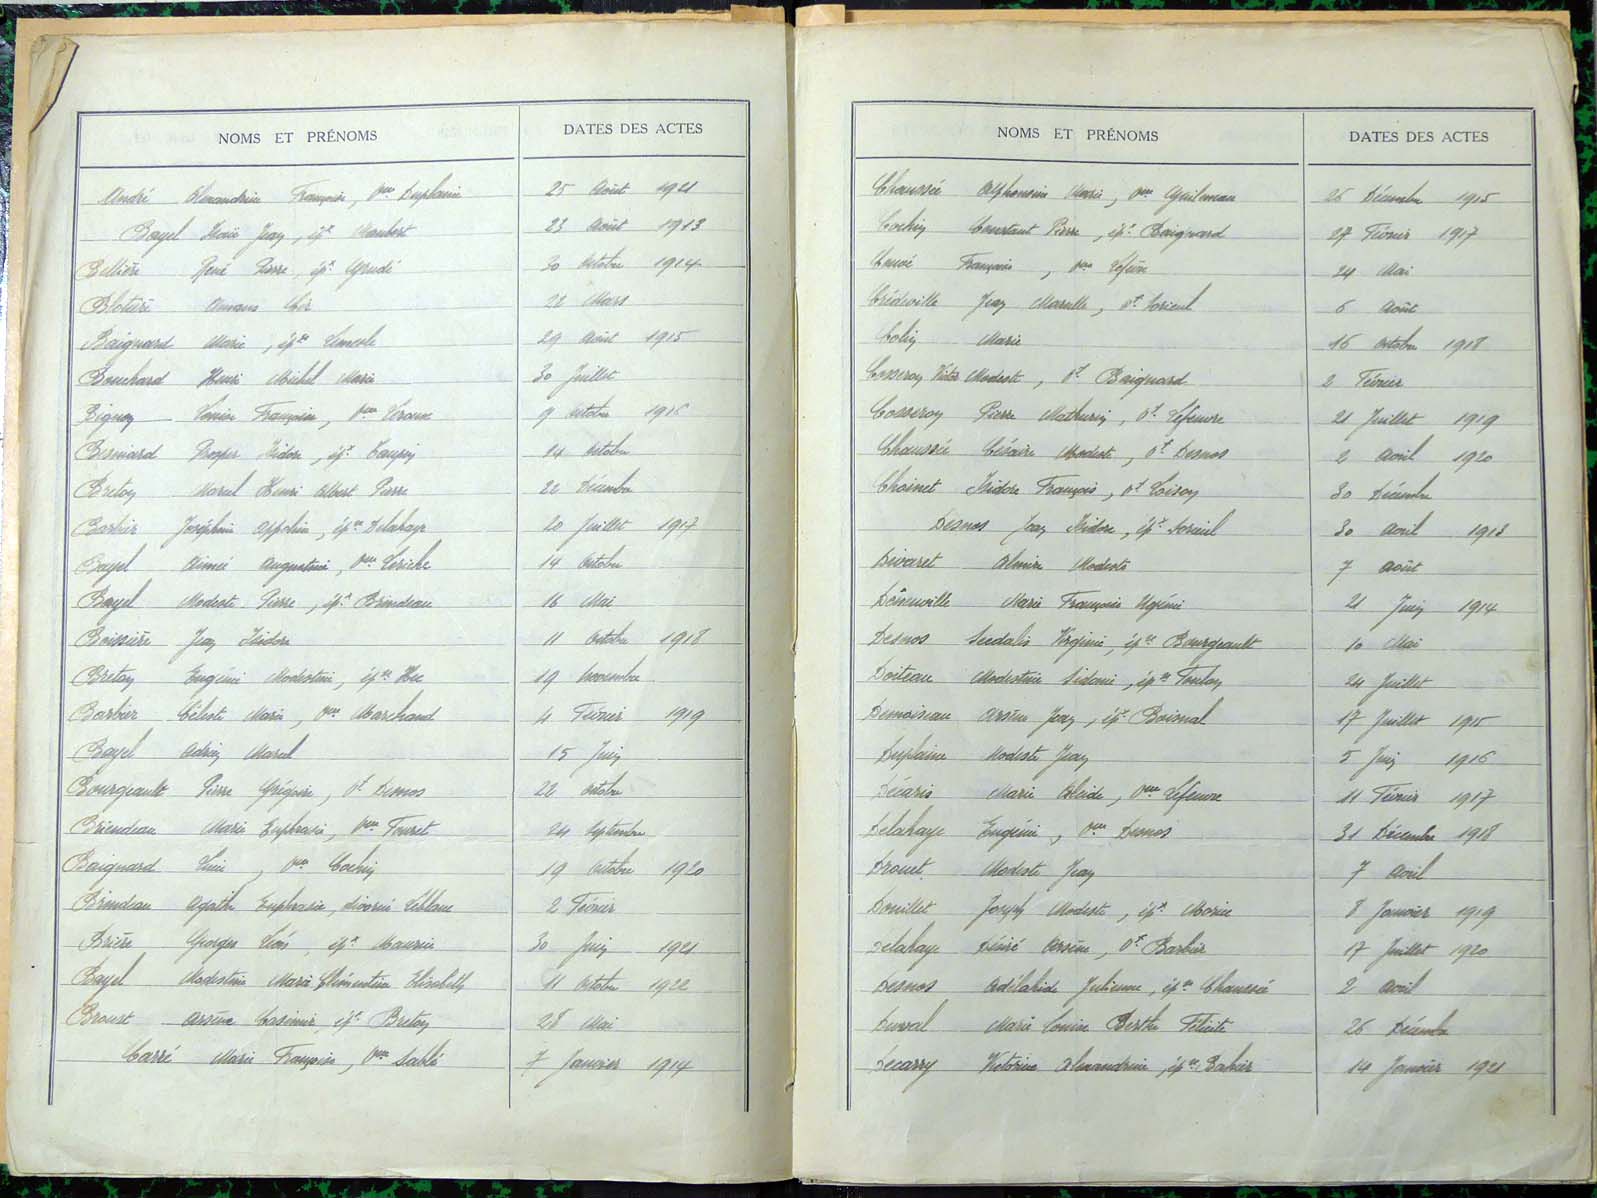 NOMS ET PRÉNOMS DATES DES ACTES
André Alexandrine Françoise, Vve Duplaine 25 Août 1921
Bayel Jean, épx Maubert 23 Août 1913
Bellière René Pierre, épx Grudé 30 Octobre 1914
Blotière 22 Mars
Baignard Marie, épse 29 Août 1915
Bouchard Henri Michel Marie 30 Juillet
Françoise, Vve Leroux 9 Octobre 1916
Besniard Prosper Isidore, épx 24 Octobre
Breton Marcel Henri Albert Pierre 22 Décembre
Barbier Joséphine Appoline, épse Delahaye 20 Juillet 1917
Bayel Aimée Augustine, Vve 14 Octobre
Bayel Modeste Pierre, épx Brindeau 16 Mai
Boissière Jean Isidore 11 Octobre 1918
Breton Eugénie Modestine, épse Huc 19 Novembre
Barbier Céleste Marie, Vve Marchand 4 Février 1919
Bayel Adrien Marcel 15 Juin
Bourgeault Pierre Grégoire, Vf Desnos 22 Octobre
Briendeau Marie Euphrasie, Vve Touret 24 Septembre
Baignard , Vve Cochin 19 Octobre 1920
Brindeau Agathe Euphrasie, divorcée Leblanc 2 Février
Brière Georges , épx 30 Juin 1921
Bayel Modestine Marie Clémentine Elisabeth 11 Octobre 1922
Broust Arsène Casimir, épx Breton 28 Mai
Carré Marie Françoise, Vve Sablé 7 Janvier 1914
NOMS ET PRÉNOMS DATES DES ACTES
Chaussée Alphonsine Marie, Vve Guilmeau 26 Décembre 1915
Cochin Constant Pierre, épx Baignard 27 Février 1917
Françoise, Vve Lefèvre 24 Mai
Crédeville Jean , Vf Lorieul 6 Août
Colin Marie 16 Octobre 1918
Cosseron Victor Modeste, Vf Baignard 2 Février
Cosseron Pierre Mathurin, Vf Lefeuvre 21 Juillet 1919
Chaussée Césaire Modeste, Vf Desnos 2 Avril 1920
Choinet Isidore François, Vf Loison 30 Décembre
Desnos Jean Isidore, épx Lorieul 30 Avril 1913
Divaret Almire Modeste 7 Août
Marie Françoise 21 Juin 1914
Desnos Virginie, épse Bourgeault 10 Mai
Doiteau Modestine Sidonie, épse Toulon 24 Juillet
Demoiseau Arsène Jean, épx 17 Juillet 1915
Duplaine Modeste Jean 5 Juin 1916
Décaris Marie , Vve Lefeuvre 11 Février 1917
Delahaye Eugénie, Vve Desnos 31 Décembre 1918
Drouet Modeste Jean 7 Avril
Douillet Joseph Modeste, épx Morice 8 Janvier 1919
Delahaye Désiré Arsène, Vf Barbier 17 Juillet 1920
Desnos Adélahide Julienne, épse Chaussée 2 Avril
Duval Marie Louise Berthe Félicité 26 Décembre
Decarry Victorine Alexandrine, épse 14 Janvier 1921